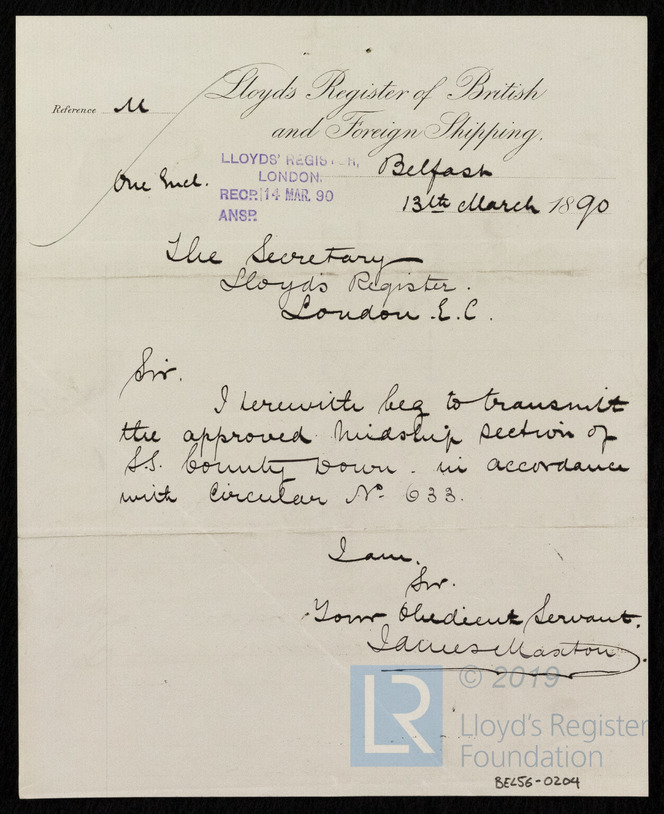 Lloyd's Register of British
and Foreign Shipping.
Reference M
One Encl.
LLOYDS' REGISTER,
LONDON.
RECP. 14 MAR. 90
ANSP.
Belfast
13th March 1890
The Secretary
Lloyds Register.
London. E.C.
Sir.
I herewith beg to transmit
the approved Midship section of
S.S. County Down. in accordance
with Circular No. 633.
I am.
Sir.
Your Obedient Servant.
James Maxton.
© 2019
LR
Lloyd's Register
Foundation
BEL56-0204